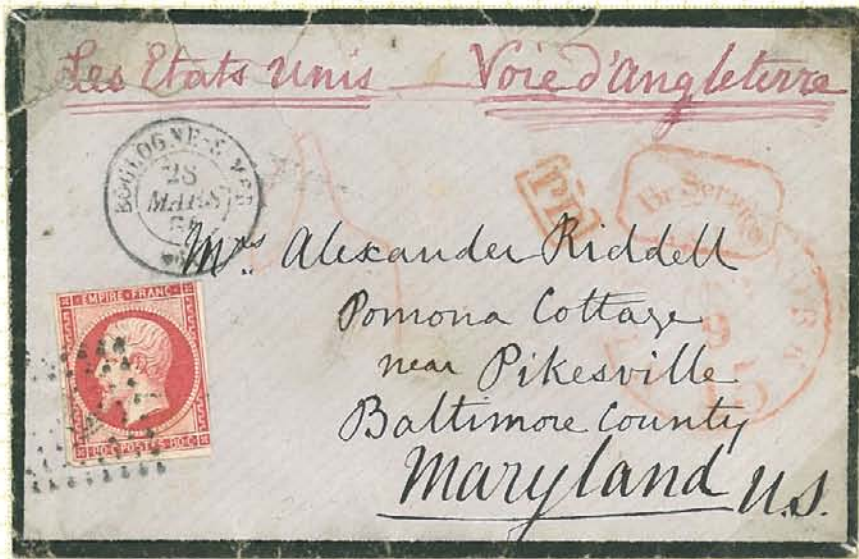 Les Etats Unis Voie d'Angleterre
BOULOGNE-S-MER
28
MARS
PD
Br. Service
Mrs. Alexander Riddell
Pomona Cottage
near Pikesville
Baltimore County
Maryland U.S.
EMPIRE · FRANC
80·C·POSTES·80·C